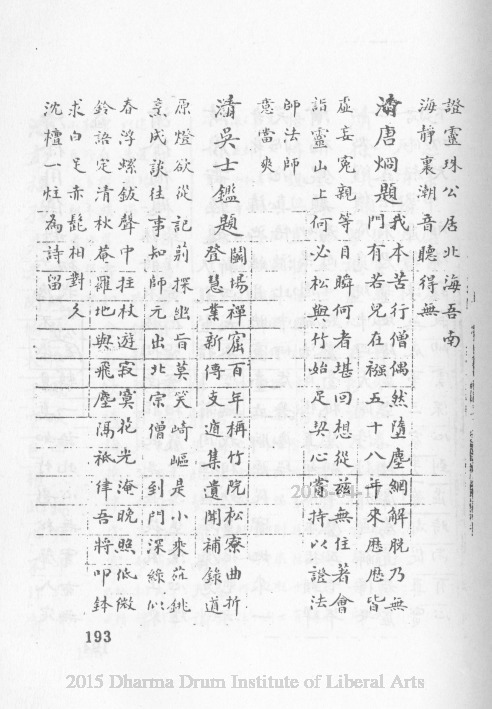 證靈珠公居北海吾南
海靜裏潮音聽得無
清唐烱題我本苦行僧偶然墮塵網解脫乃無
門有若兒在襁五十八年來歷歷皆
虛妄冤親等目瞬何者堪回想從茲無住著會
詣靈山上何必松與竹始足契心賞持以證法
師法師
意當爽
清吳士鑑題闢場禪窟百年稱竹院松寮曲折
登慧業新傳支遁集遺聞補錄道
原燈欲從記莂探幽旨莫笑崎嶇是小乘茆銚
烹成談往事知師元出北宗僧 到門深綠似
春浮螺鈸聲中拄杖遊寂寞花光淹晚照低微
鈴語定清秋菴羅地與飛塵隔祗律吾將叩鉢
求白足赤髭相對久
沈檀一炷為詩留
193
2015 Dharma Drum Institute of Liberal Arts